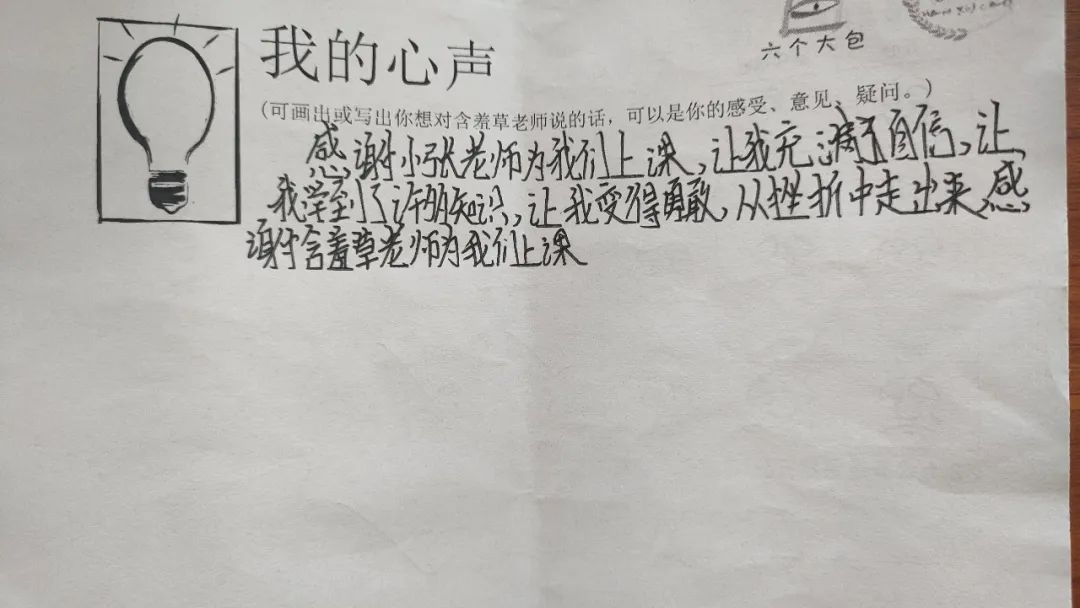 六个大包
我的心声
(可画出或写出你想对含羞草老师说的话，可以是你的感受、意见、疑问。)
感谢小张老师为我们上课,让我充满了自信,让
我学到了许多知识,让我变得勇敢,从挫折中走出来,感
谢含羞草老师为我们上课